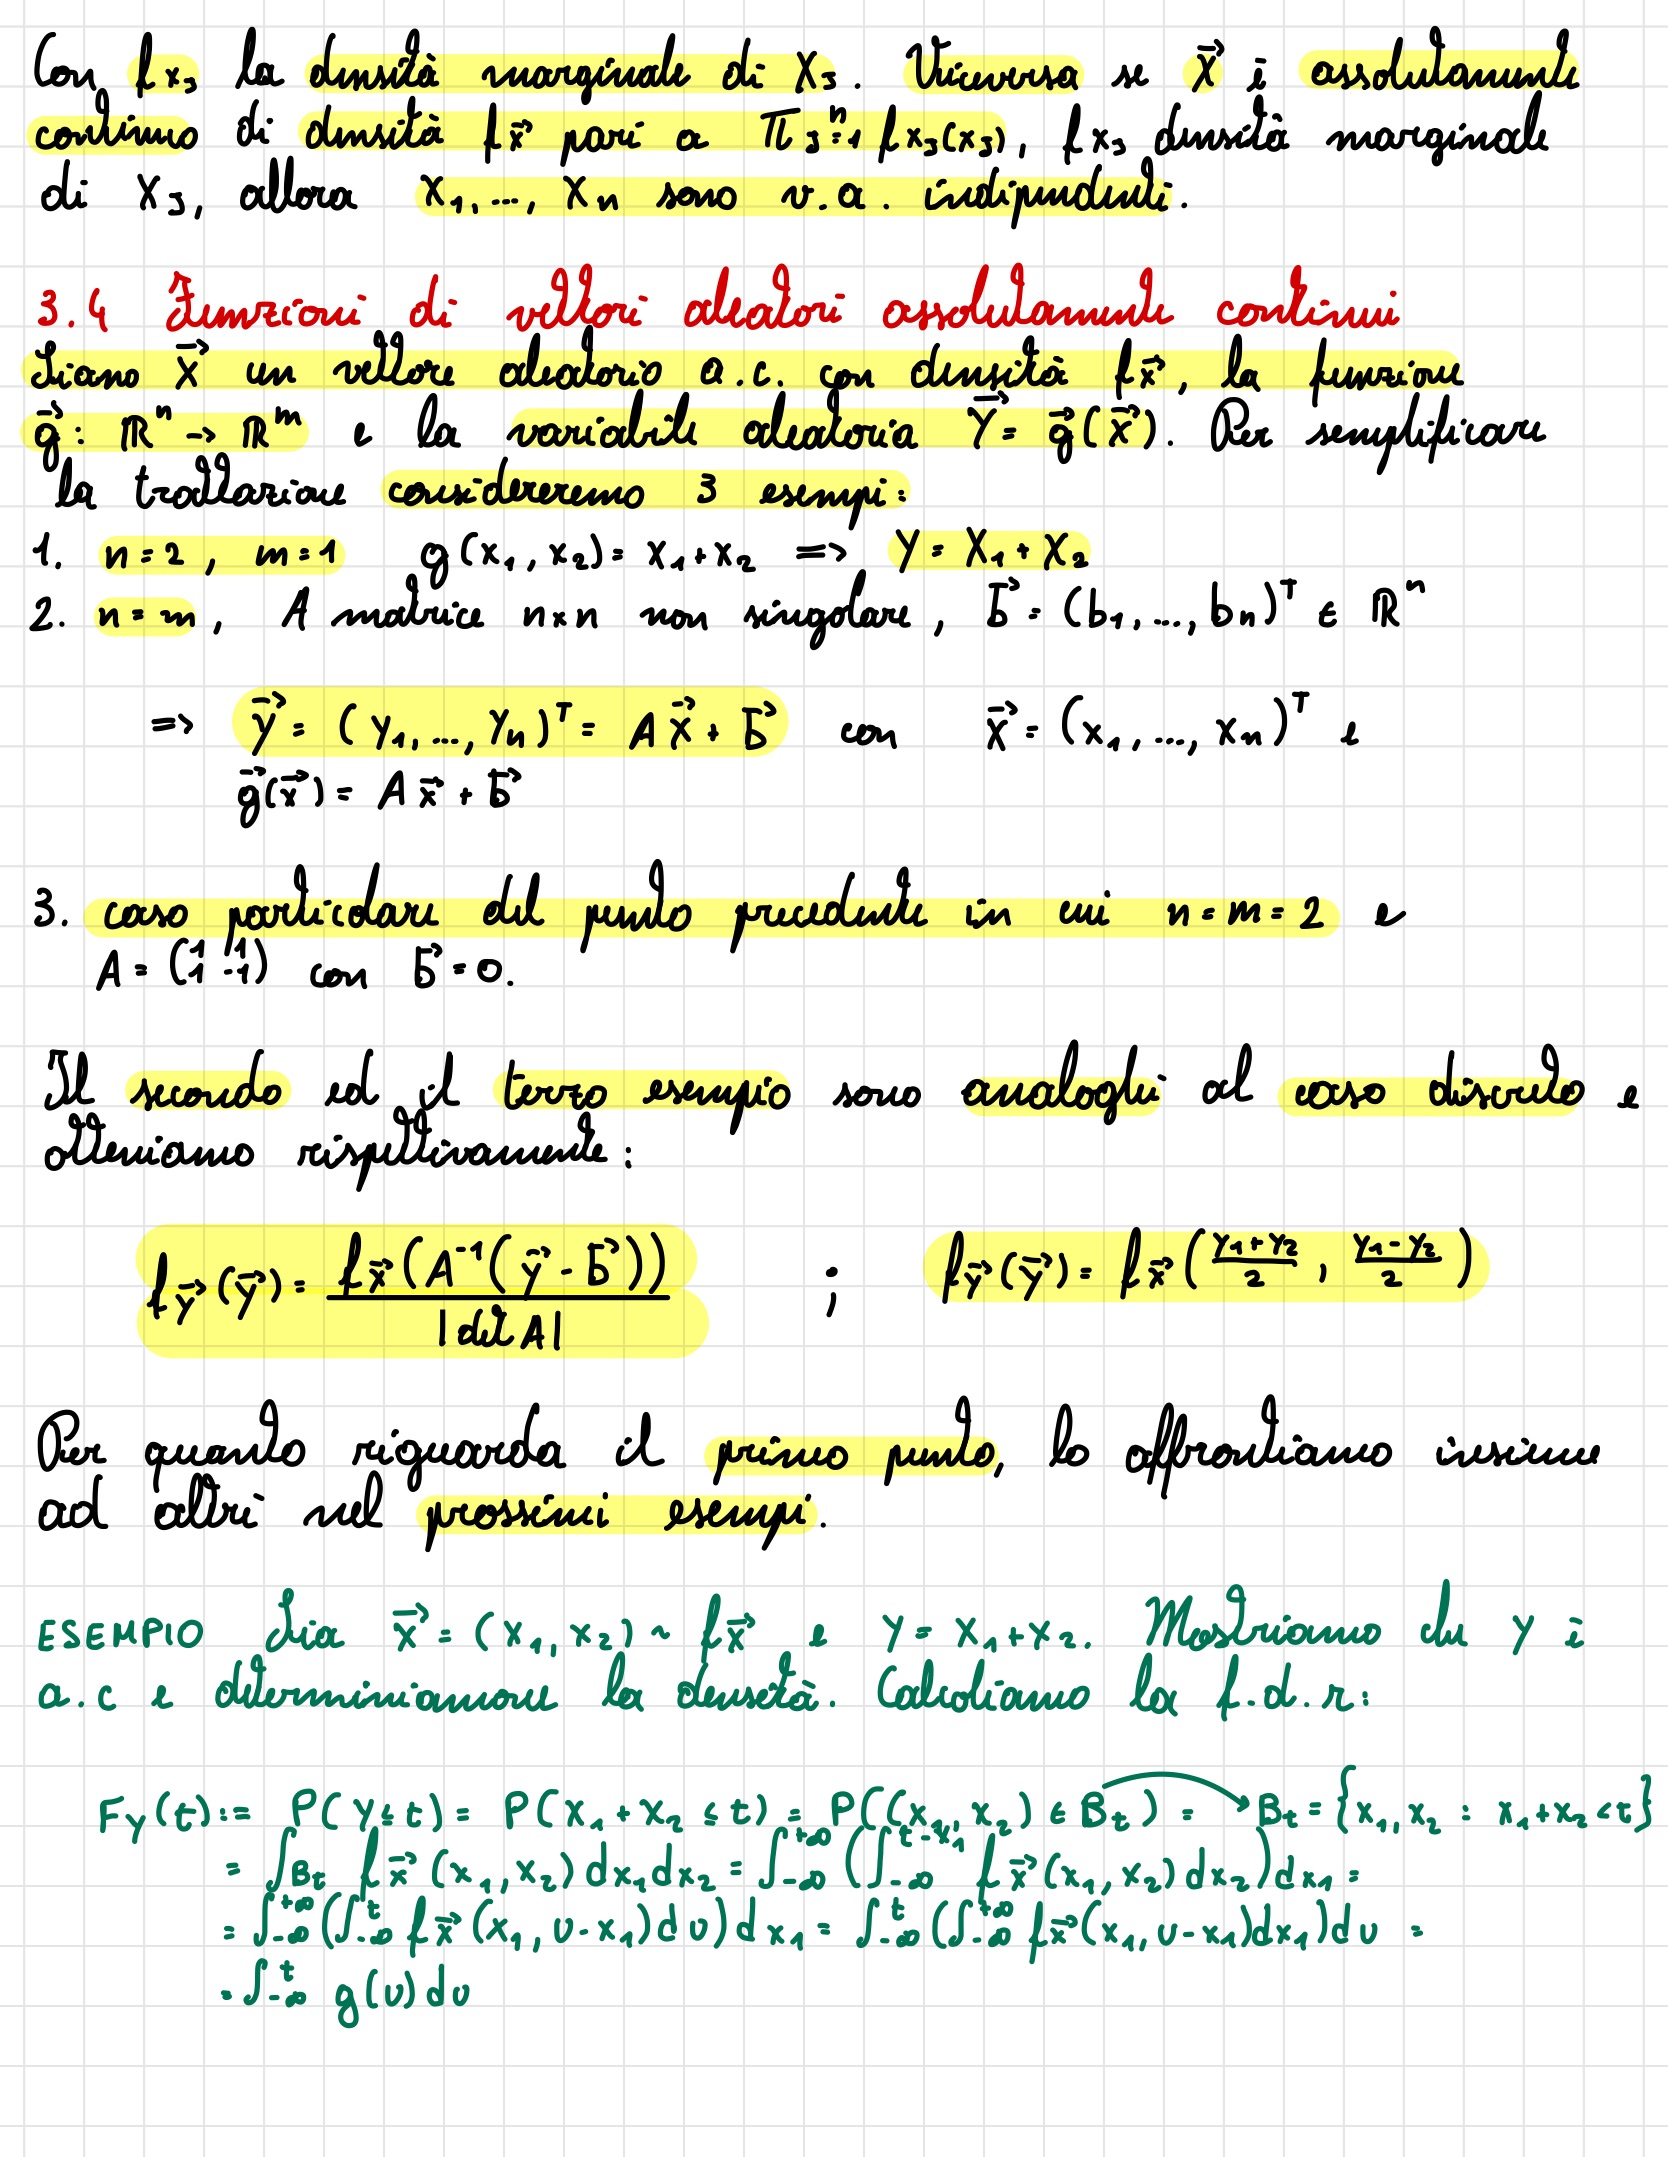 Con f x_J la densità marginale di X_J. Viceversa se X⃗ è assolutamente
continuo di densità f_X⃗ pari a Π_{J=1}^n f x_J(x_J), f x_J densità marginale
di X_J, allora X_1,..., X_n sono v.a. indipendenti.
3.4 Funzioni di vettori aleatori assolutamente continui
Siano X⃗ un vettore aleatorio a.c. con densità f_X⃗, la funzione
g⃗: ℝ^n → ℝ^m e la variabile aleatoria Y⃗ = g⃗(X⃗). Per semplificare
la trattazione considereremo 3 esempi:
1. n=2, m=1 g(x_1, x_2) = x_1+x_2 => Y = X_1+X_2
2. n=m, A matrice n×n non singolare, b⃗ = (b_1,..., b_n)^T ∈ ℝ^n
=> y⃗ = (y_1,..., y_n)^T = A X⃗ + b⃗ con X⃗ = (x_1,..., x_n)^T e
g⃗(x⃗) = A x⃗ + b⃗
3. caso particolare del punto precedente in cui n=m=2 e
A = (1 1 1 -1) con b⃗ = 0.
Il secondo ed il terzo esempio sono analoghi al caso discreto e
otteniamo rispettivamente:
f_Y⃗(y⃗) = f_X⃗(A^-1(y⃗ - b⃗)) / |det A| ; f_Y⃗(y⃗) = f_X⃗((y_1+y_2)/2, (y_1-y_2)/2)
Per quanto riguarda il primo punto, lo affrontiamo insieme
ad altri nel prossimi esempi.
ESEMPIO Sia X⃗ = (X_1, X_2) ~ f_X⃗ e Y = X_1+X_2. Mostriamo che Y è
a.c e determiniamone la densità. Calcoliamo la f.d.r:
F_Y(t) := P(Y≤t) = P(X_1+X_2 ≤ t) = P((X_1, X_2) ∈ B_t) = B_t = {x_1, x_2 : x_1+x_2 < t}
= ∫_{B_t} f_X⃗(x_1, x_2) dx_1 dx_2 = ∫_{-∞}^{+∞} (∫_{-∞}^{t-x_1} f_X⃗(x_1, x_2) dx_2) dx_1 =
= ∫_{-∞}^{+∞} (∫_{-∞}^{t} f_X⃗(x_1, u-x_1) du) dx_1 = ∫_{-∞}^{t} (∫_{-∞}^{+∞} f_X⃗(x_1, u-x_1) dx_1) du =
= ∫_{-∞}^{t} g(u) du